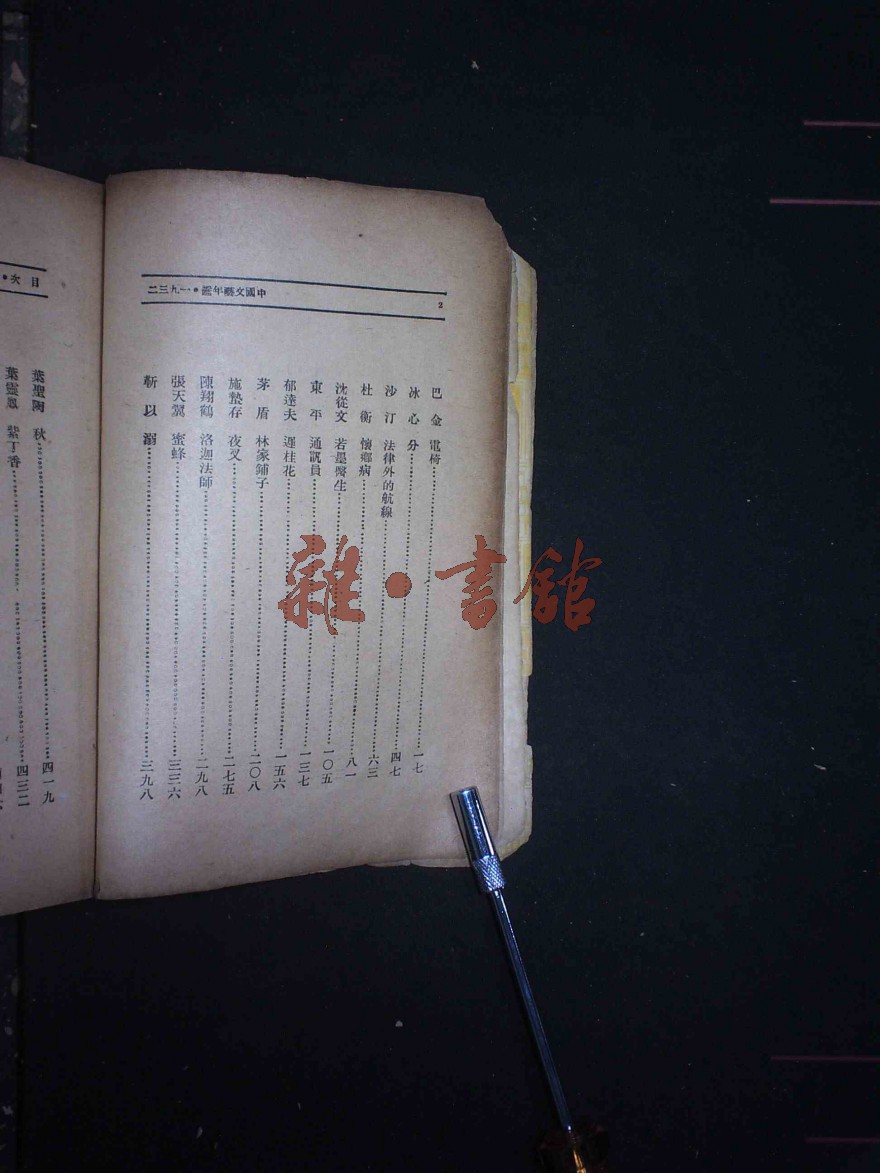 2
中國文藝年鑑•一九三二
巴金 電椅……一七
冰心 分……四七
沙汀 法律外的航線……六三
杜衡 懷鄉病……八一
沈從文 若墨醫生……一〇五
東平 通訊員……一三七
郁達夫 遲桂花……一五六
茅盾 林家鋪子……二〇八
施蟄存 夜叉……二七五
陳翔鶴 洛迦法師……二九八
張天翼 蜜蜂……三三六
靳以 溺……三九八
目次•
葉聖陶 秋……四一九
葉靈鳳 紫丁香……四三二
雜•書館